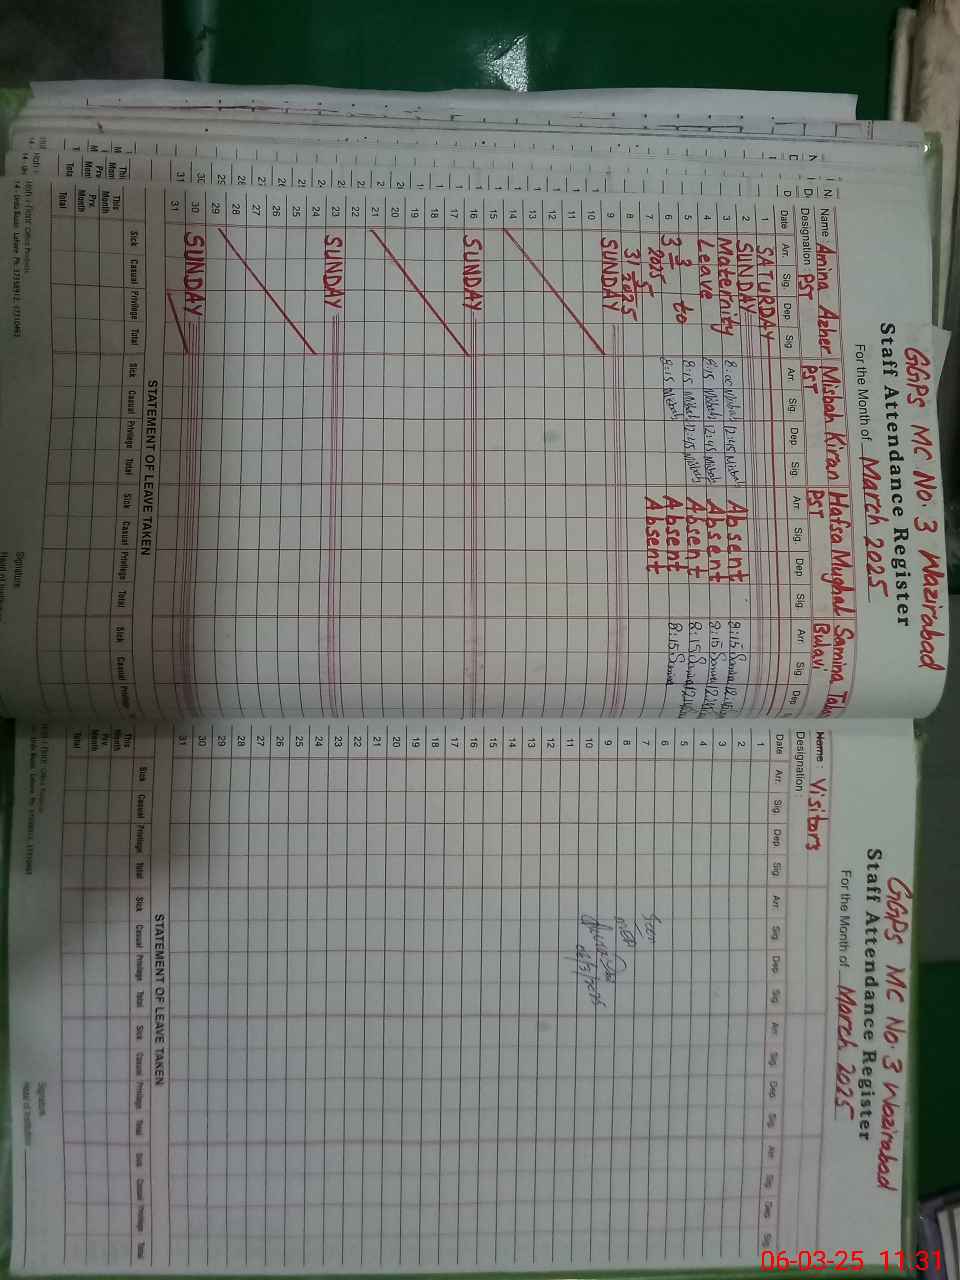 GGPS MC No. 3 Wazirabad
Staff Attendance Register
For the Month of March 2025
Name : Amina Azher Misbah Kiran Hafsa Mughal Samina
Designation : PST PST PST Bulavi
Date Arr. Sig. Dep Sig. Arr. Sig. Dep. Sig. Arr. Sig. Dep Sig. Arr. Sig. Dep
1 SATURDAY
2 SUNDAY
3 Maternity 8:00 Misbah 12:45 Misbah Absent 8:15
4 Leave 8:15 Misbah 12:45 Misbah Absent 8:15
5 3/3 to 8:15 Misbah 12:45 Misbah Absent 8:15
6 2025 8:15 Misbah Absent 8:15
7 31/5 Absent
8 2025
9 SUNDAY
10
11
12
13
14
15
16 SUNDAY
17
18
19
20
21
22
23 SUNDAY
24
25
26
27
28
29
30 SUNDAY
31
STATEMENT OF LEAVE TAKEN
Sick Casual Privilege Total Sick Casual Privilege Total Sick Casual Privilege Total Sick Casual Privilege
This Month
Prv. Month
Total
Signature
GGPS MC No. 3 Wazirabad
Staff Attendance Register
For the Month of March 2025
Name : Visitors
Designation :
Date Arr. Sig. Dep. Sig. Arr. Sig. Dep. Sig. Arr. Sig. Dep. Sig. Arr. Sig. Dep. Sig.
1
2
3
4
5
6
7 Seen
8
9
10 06/3/2025
11
12
13
14
15
16
17
18
19
20
21
22
23
24
25
26
27
28
29
30
31
STATEMENT OF LEAVE TAKEN
Sick Casual Privilege Total Sick Casual Privilege Total Sick Casual Privilege Total Sick Casual Privilege Total
This Month
Prv. Month
Total
Signature
Head of Institution
06-03-25 11:31